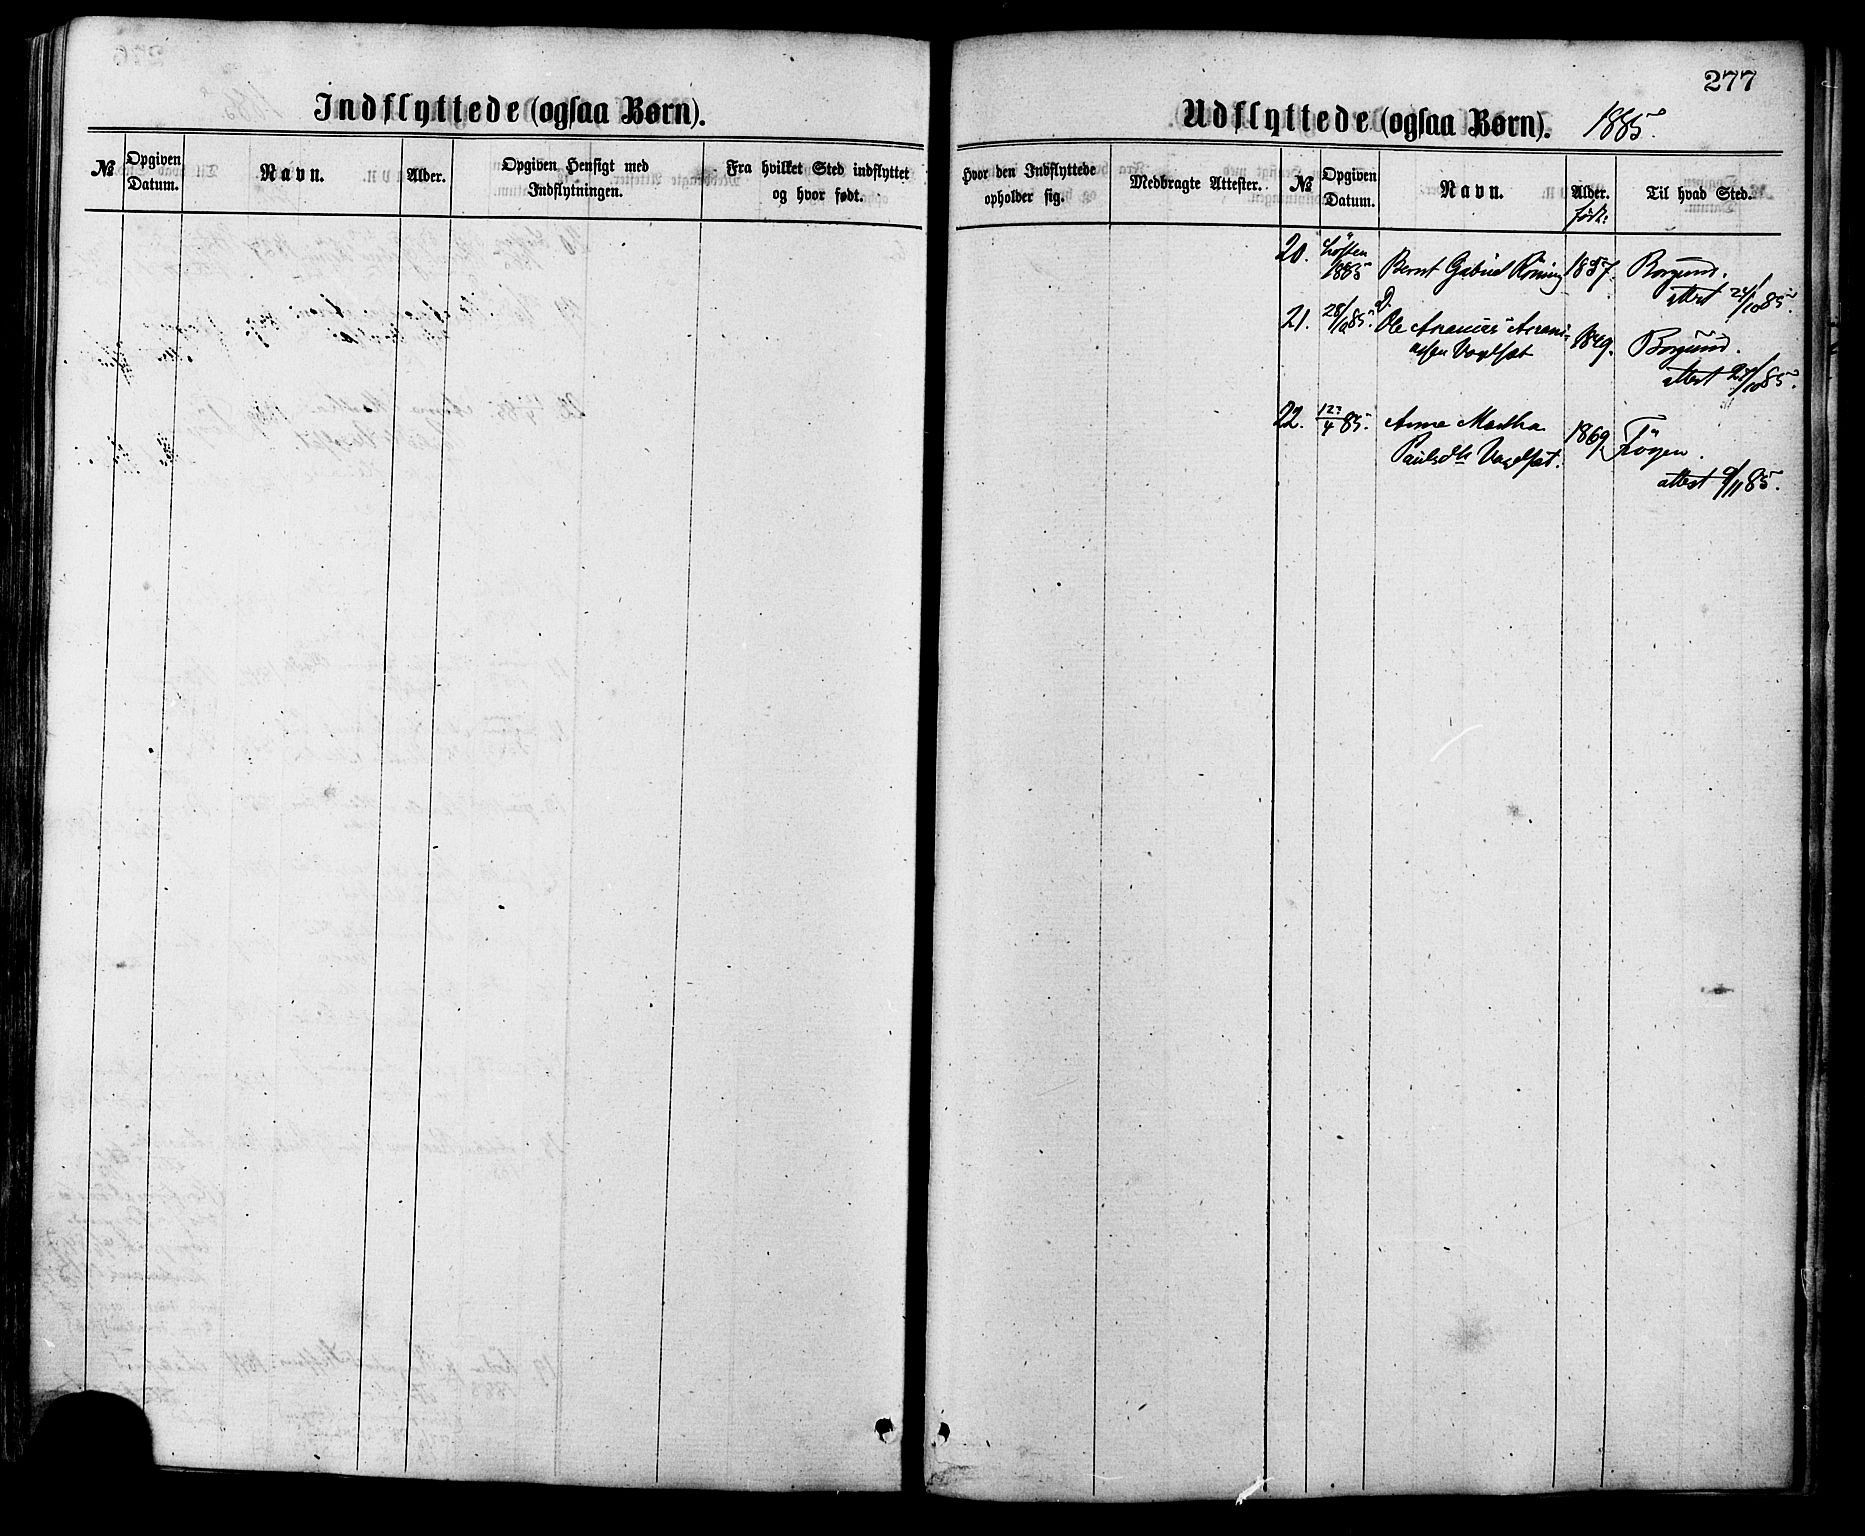 Indflyttede (ogsaa Børn).
№
Opgiven Datum.
Navn.
Alder.
Opgiven Hensigt med Indflytningen.
Fra hvilket Sted indflyttet og hvor født.
277
Udflyttede (ogsaa Børn). 1885.
Hvor den Indflyttede opholder sig.
Medbragte Attester.
№
Opgiven Datum.
Navn.
Alder.
født:
Til hvad Sted.
20. Høsten 1885 Bernt Gabriel 1857. Borgund.
attest 24/10 85.
21. 28/10 85. Ole
Vagelsæt 1849. Borgund.
attest 27/10 85.
22. 12/4 85. Anne Martha
Paulsdtr Vagelsæt. 1869
attest 9/11 85.